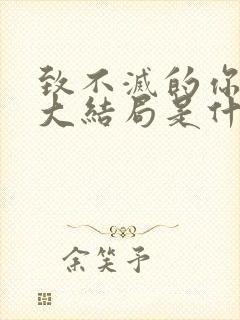 致不滅的你
大結局是什
余笑予